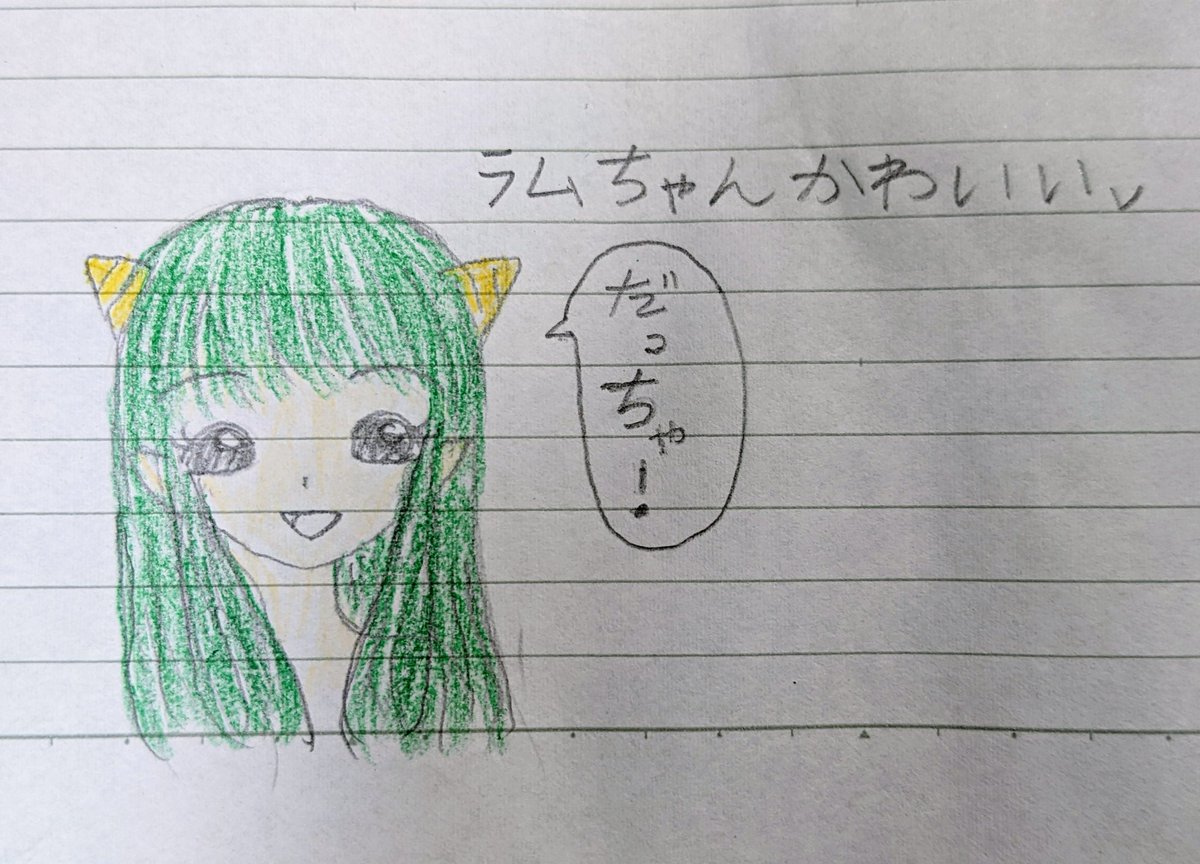 ラムちゃんかわいい、
だっちゃ!